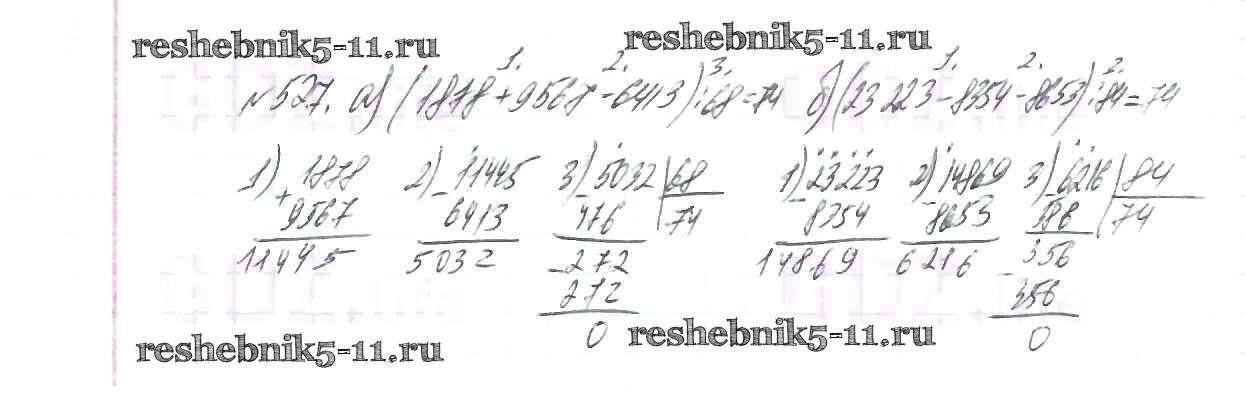 reshebnik5-11.ru reshebnik5-11.ru
1. 2. 3. 1. 2. 2.
№527. а) (1878+9567-6413):68=74 б) (23223-8354-8653):84=74
1) 1878 2) 11445 3) 5032 68 1) 23223 2) 14869 3) 6216 84
+ 9567 - 6413 - 476 74 - 8354 - 8653 - 588 74
11445 5032 -272 14869 6216 - 356
272 356
0 0
reshebnik5-11.ru reshebnik5-11.ru